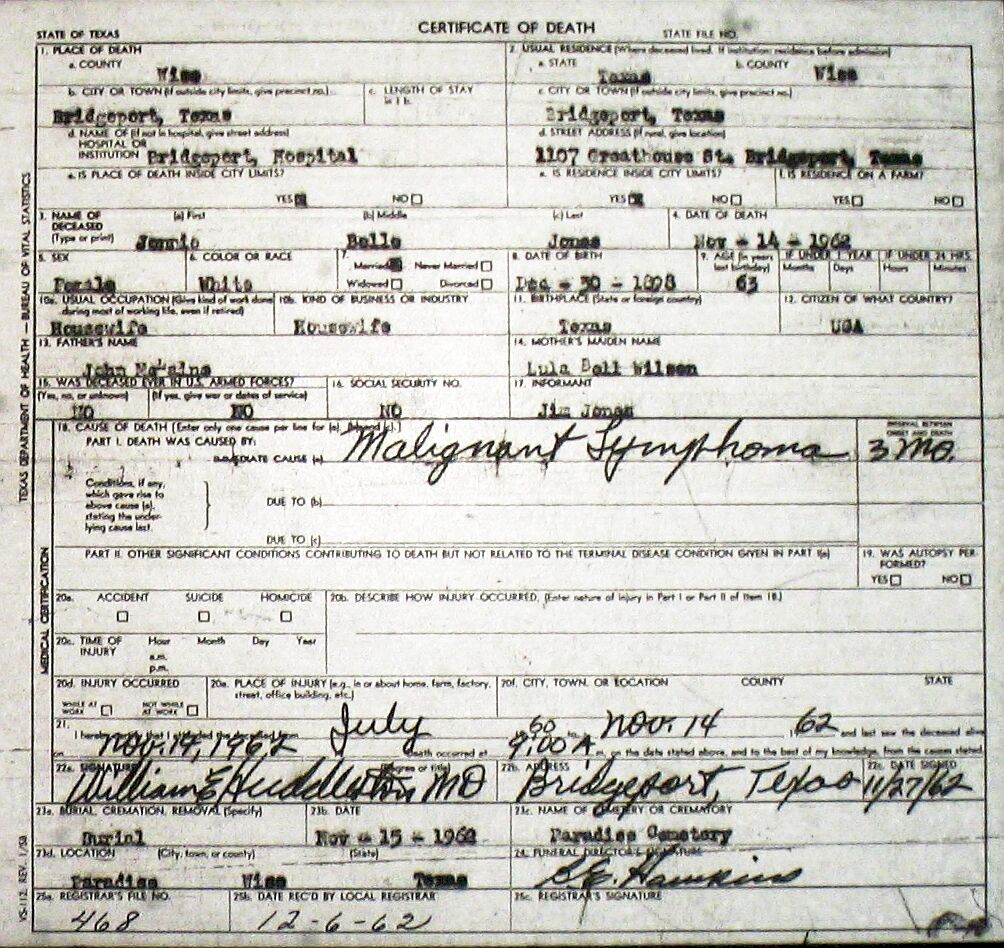 CERTIFICATE OF DEATH
STATE OF TEXAS STATE FILE NO.
1. PLACE OF DEATH 2. USUAL RESIDENCE (Where deceased lived. If institution: residence before admission)
a. COUNTY Wise a. STATE Texas b. COUNTY Wise
b. CITY OR TOWN (If outside city limits, give precinct no.) c. LENGTH OF STAY in 1 b. c. CITY OR TOWN (If outside city limits, give precinct no.)
Bridgeport, Texas Bridgeport, Texas
d. NAME OF (If not in hospital, give street address) d. STREET ADDRESS (If rural, give location)
HOSPITAL OR
INSTITUTION Bridgeport, Hospital 1107 Greathouse St. Bridgeport, Texas
e. IS PLACE OF DEATH INSIDE CITY LIMITS? e. IS RESIDENCE INSIDE CITY LIMITS? f. IS RESIDENCE ON A FARM?
YES NO YES NO YES NO
3. NAME OF DECEASED (Type or print) (a) First (b) Middle (c) Last 4. DATE OF DEATH
Jennie Belle Jones Nov - 14 - 1962
5. SEX 6. COLOR OR RACE 7. Married Never Married 8. DATE OF BIRTH 9. AGE (In years last birthday) IF UNDER 1 YEAR IF UNDER 24 HRS.
Widowed Divorced Months Days Hours Minutes
Female White Dec - 30 - 1898 63
10a. USUAL OCCUPATION (Give kind of work done during most of working life, even if retired) 10b. KIND OF BUSINESS OR INDUSTRY 11. BIRTHPLACE (State or foreign country) 12. CITIZEN OF WHAT COUNTRY?
Housewife Housewife Texas USA
13. FATHER'S NAME 14. MOTHER'S MAIDEN NAME
John Lula Bell Wilson
15. WAS DECEASED EVER IN U.S. ARMED FORCES? 16. SOCIAL SECURITY NO. 17. INFORMANT
(Yes, no, or unknown) (If yes, give war or dates of service)
NO NO NO Jim Jones
18. CAUSE OF DEATH [Enter only one cause per line for (a), (b) and (c).] INTERVAL BETWEEN ONSET AND DEATH
PART I. DEATH WAS CAUSED BY:
IMMEDIATE CAUSE (a) Malignant Lymphoma 3 Mo.
Conditions, if any, which gave rise to above cause (a), stating the under-lying cause last.
DUE TO (b)
DUE TO (c)
PART II. OTHER SIGNIFICANT CONDITIONS CONTRIBUTING TO DEATH BUT NOT RELATED TO THE TERMINAL DISEASE CONDITION GIVEN IN PART I(a) 19. WAS AUTOPSY PER-FORMED?
YES NO
20a. ACCIDENT SUICIDE HOMICIDE 20b. DESCRIBE HOW INJURY OCCURRED. (Enter nature of injury in Part I or Part II of item 18.)
20c. TIME OF INJURY Hour Month Day Year
a.m.
p.m.
20d. INJURY OCCURRED 20e. PLACE OF INJURY (e.g., in or about home, farm, factory, street, office building, etc.) 20f. CITY, TOWN, OR LOCATION COUNTY STATE
WHILE AT WORK NOT WHILE AT WORK
21. I hereby certify that I attended the deceased from July 60 to Nov. 14 1962 and last saw the deceased alive
on Nov. 14, 1962 Death occurred at 9:00 A m. on the date stated above, and to the best of my knowledge, from the causes stated.
22a. SIGNATURE (Degree or title) 22b. ADDRESS 22c. DATE SIGNED
William E Huddleston MD Bridgeport, Texas 11/27/62
23a. BURIAL, CREMATION, REMOVAL (Specify) 23b. DATE 23c. NAME OF CEMETERY OR CREMATORY
Burial Nov - 15 - 1962 Paradise Cemetery
23d. LOCATION (City, town, or county) (State) 24. FUNERAL DIRECTOR'S SIGNATURE
Paradise Wise Texas Hawkins
25a. REGISTRAR'S FILE NO. 25b. DATE REC'D BY LOCAL REGISTRAR 25c. REGISTRAR'S SIGNATURE
468 12-6-62
TEXAS DEPARTMENT OF HEALTH — BUREAU OF VITAL STATISTICS
MEDICAL CERTIFICATION
VS-112, REV. 1/58